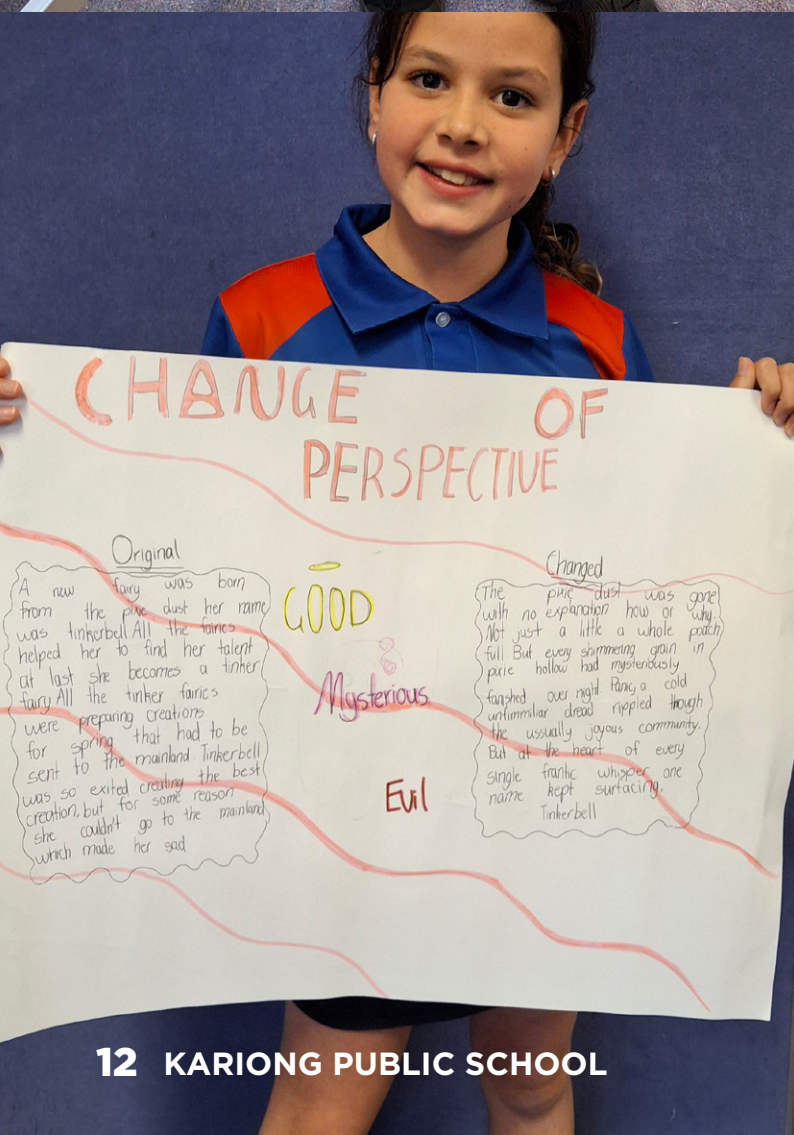 CHANGE OF
PERSPECTIVE
Original
A new fairy was born
from the pixie dust her name
was tinkerbell All the fairies
helped her to find her talent
at last she becomes a tinker
fairy All the tinker fairies
were preparing creations
for spring that had to be
sent to the mainland Tinkerbell
was so exited creating the best
creation, but for some reason
she couldn't go to the mainland
which made her sad
GOOD
Mysterious
Evil
Changed
The pixie dust was gone
with no explanation how or why.
Not just a little a whole pouch
full But every shimmering grain in
pixie hollow had mysteriously
fanished over night Panic, a cold
unfimmliar dread rippled though
the ussually joyous community.
But at the heart of every
single frantic whisper one
name kept surfacing.
Tinkerbell
12 KARIONG PUBLIC SCHOOL